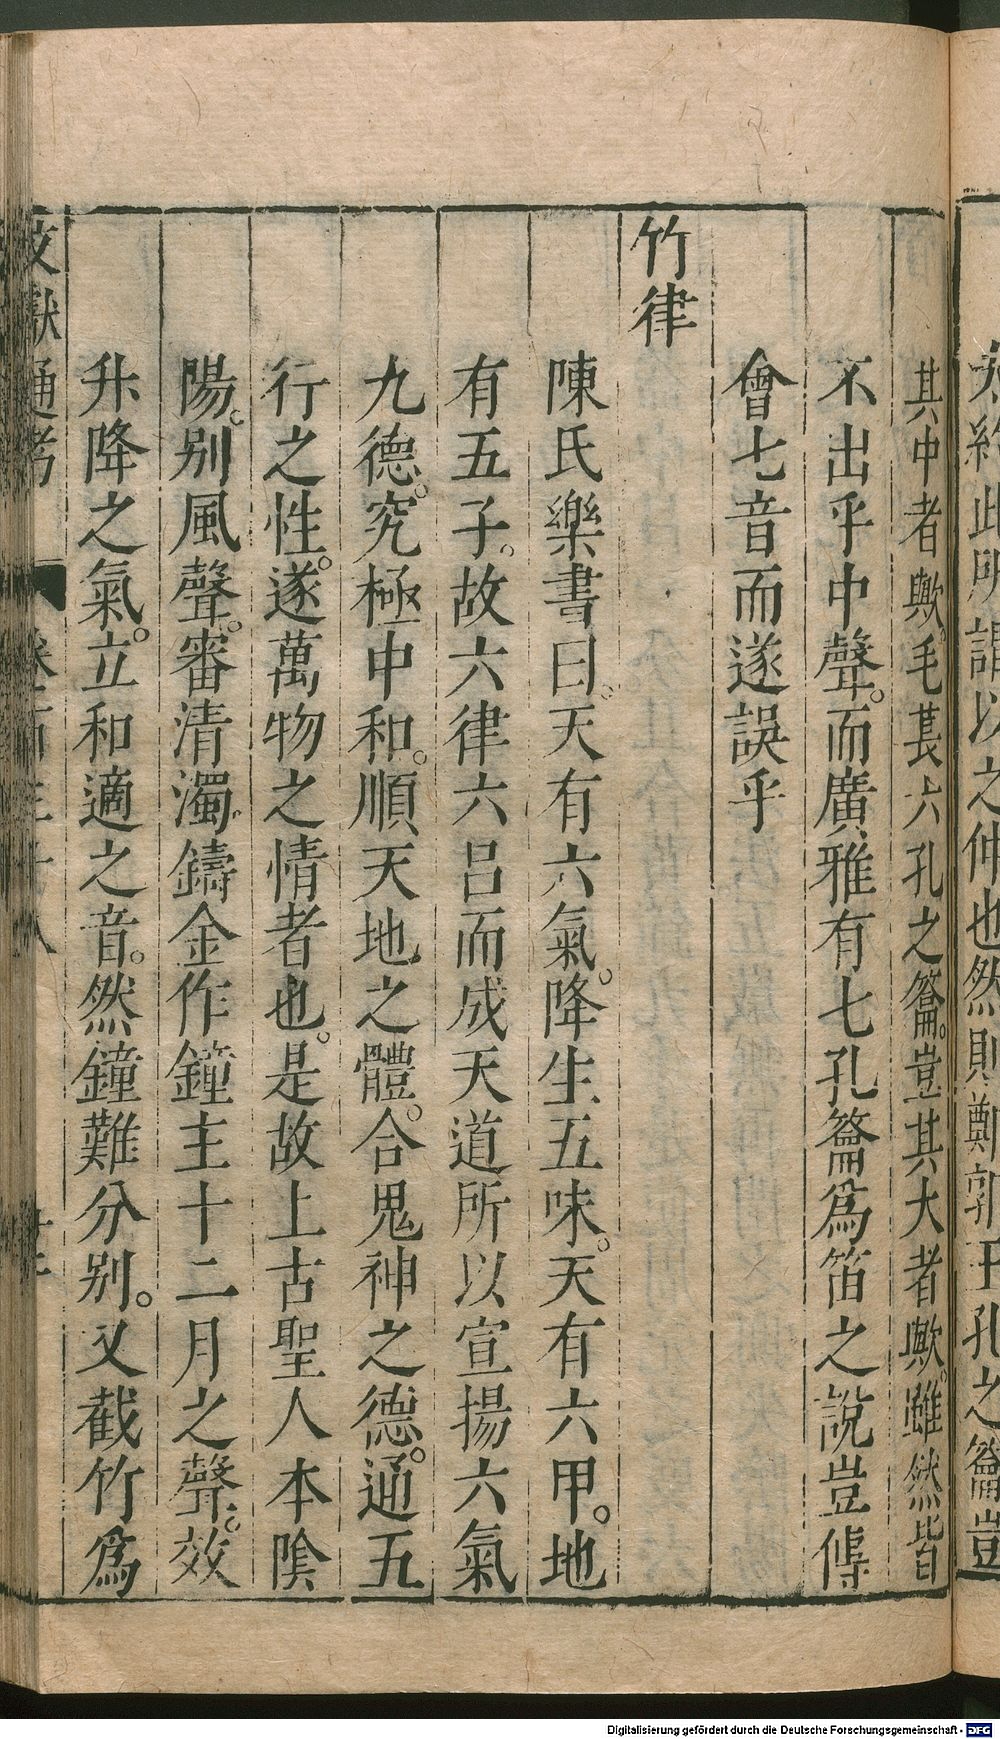 此所謂以之仲也然則鄭郭王孔之籥豈
其中者歟毛萇六孔之籥豈其大者歟雖然皆
不出乎中聲。而廣雅有七孔籥爲笛之說豈傳
會七音而遂誤乎
竹律
陳氏樂書曰。天有六氣。降生五味。天有六甲。地
有五子。故六律六呂而成天道所以宣揚六氣
九德。究極中和。順天地之體。合鬼神之德。通五
行之性。遂萬物之情者也。是故上古聖人本陰
陽。别風聲。審清濁。鑄金作鐘主十二月之聲。效
升降之氣。立和適之音。然鐘難分别。又截竹爲
文獻通考
Digitalisierung gefördert durch die Deutsche Forschungsgemeinschaft - DFG